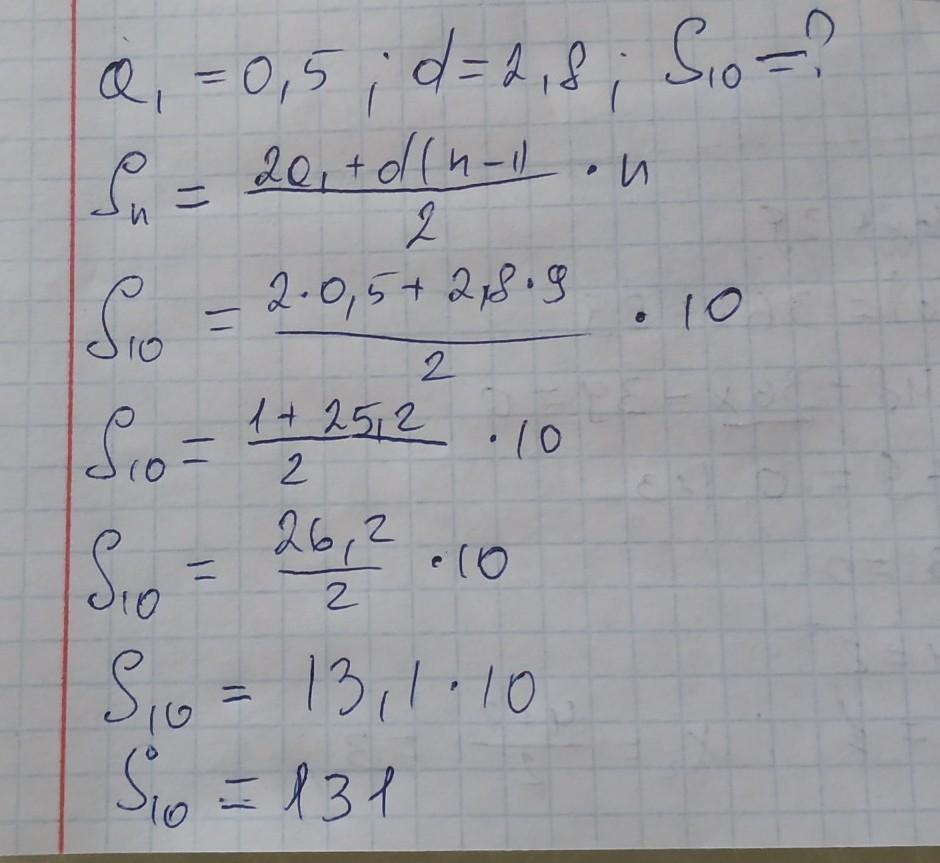 a₁ = 0,5 ; d = 2,8 ; S₁₀ = ?
Sₙ = (2a₁ + d(n-1))/2 · n
S₁₀ = (2·0,5 + 2,8·9)/2 · 10
S₁₀ = (1 + 25,2)/2 · 10
S₁₀ = 26,2/2 · 10
S₁₀ = 13,1 · 10
S₁₀ = 131